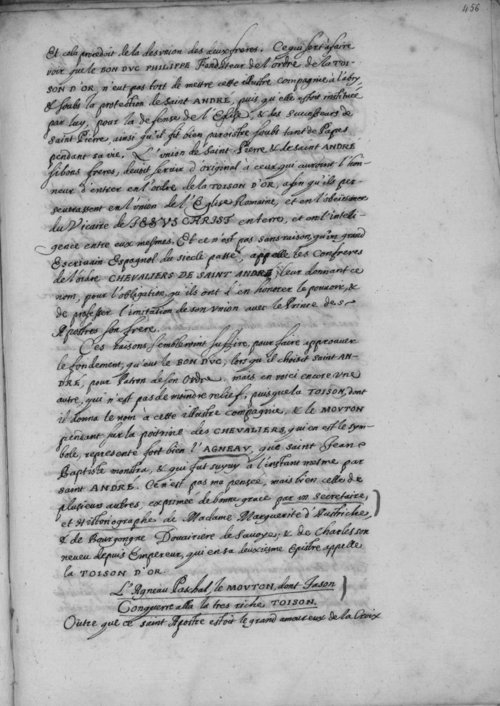 456
Et cela procedoit de la desunion des deux freres. Ce qui sert à faire
voir que le BON DUC PHILIPPE Fondateur de l'ordre de la TOI-
SON D'OR, n'eut pas tort de mettre cette illustre compagnie à l'abry
& soubs la protection de Saint ANDRE, puis qu'elle estoit instituée
par luy, pour la defense de l'Eglise, & des successeurs de
Saint Pierre, ainsi qu'il fit bien paroistre soubs tant de Papes
pendant sa vie. L'union de Saint Pierre & de saint ANDRE
si bons freres, devoit servir d'original à ceux qui auroient l'hon-
neur d'entrer en l'ordre de la TOISON D'OR, afin qu'ils per-
severassent en l'union de l'Eglise Romaine, et en l'obeissance
du Vicaire de JESUS CHRIST en terre, et en l'inteli-
gence entre eux mesmes. Et ce n'est pas sans raison, qu'un grand
Escrivain Espagnol du siecle passé, appelle les Confreres
de l'ordre CHEVALIERS DE SAINT ANDRE, leur donnant ce
nom, pour l'obligation qu'ils ont d'en honorer le pouvoir, &
de professer l'imitation de son union avec le Prince des
Apostres son frere.
Ces raisons sembleroient suffire, pour faire approuver
le fondement, qu'eut le BON DUC, lors qu'il choisit saint AN-
DRE, pour Patron de son Ordre, mais en voici encore une
autre, qui n'est pas de moindre relief, puis que la TOISON, dont
il donna le nom à cette illustre compagnie, & le MOUTON
pendant sur la poitrine des CHEVALIERS, qui en est le sym-
bole, represente fort bien l'AGNEAU, que saint Jean
Baptiste monstra, & qui fut suyvy à l'instant mesme par
saint ANDRE. Ce n'est pas ma pensée, mais bien celle de
plusieurs autres, exprimée de bonne grace par un Secretaire,
et Historiographe de Madame Marguerite d'Austriche,
& de Bourgongne Douairiere de Savoye, & de Charles son
neveu depuis Empereur, qui en sa deuxiesme Epistre appelle
la TOISON D'OR.
L'Agneau Paschal, le MOUTON, dont Jason
Conquerre alla la tres riche TOISON.
Outre que ce saint Apostre estoit le grand amoureux de la Croix